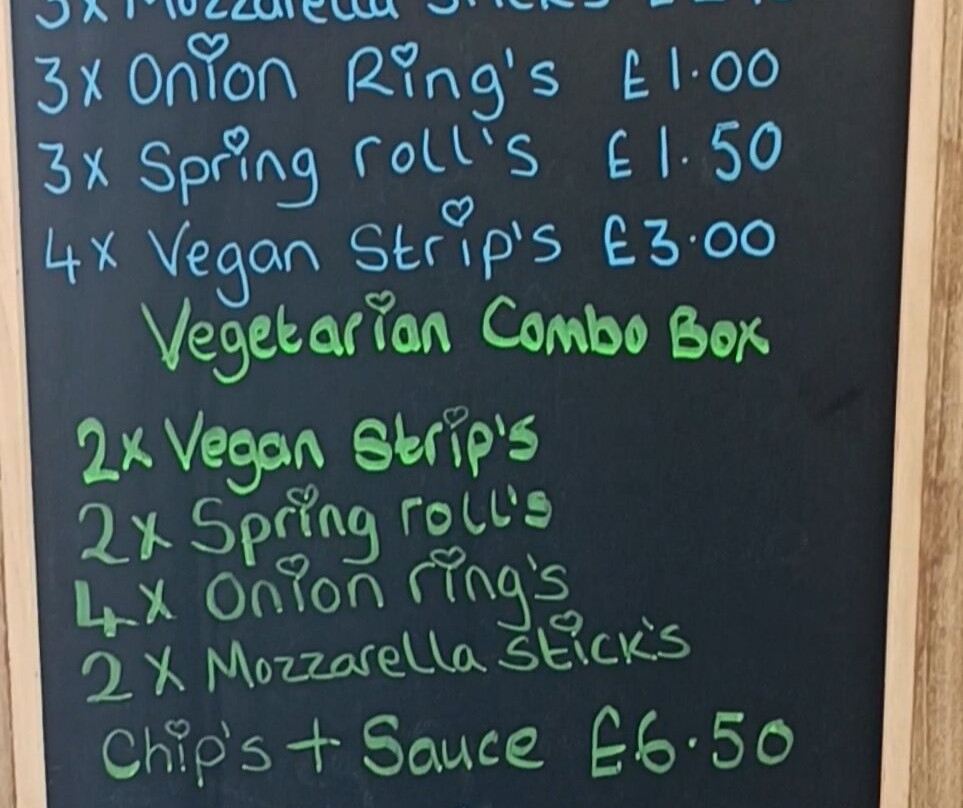 3x Mozzarella Sticks
3x Onion Ring's £1.00
3x Spring roll's £1.50
4x Vegan Strip's £3.00
Vegetarian Combo Box
2x Vegan Strip's
2x Spring roll's
4x Onion ring's
2x Mozzarella stick's
Chip's + Sauce £6.50